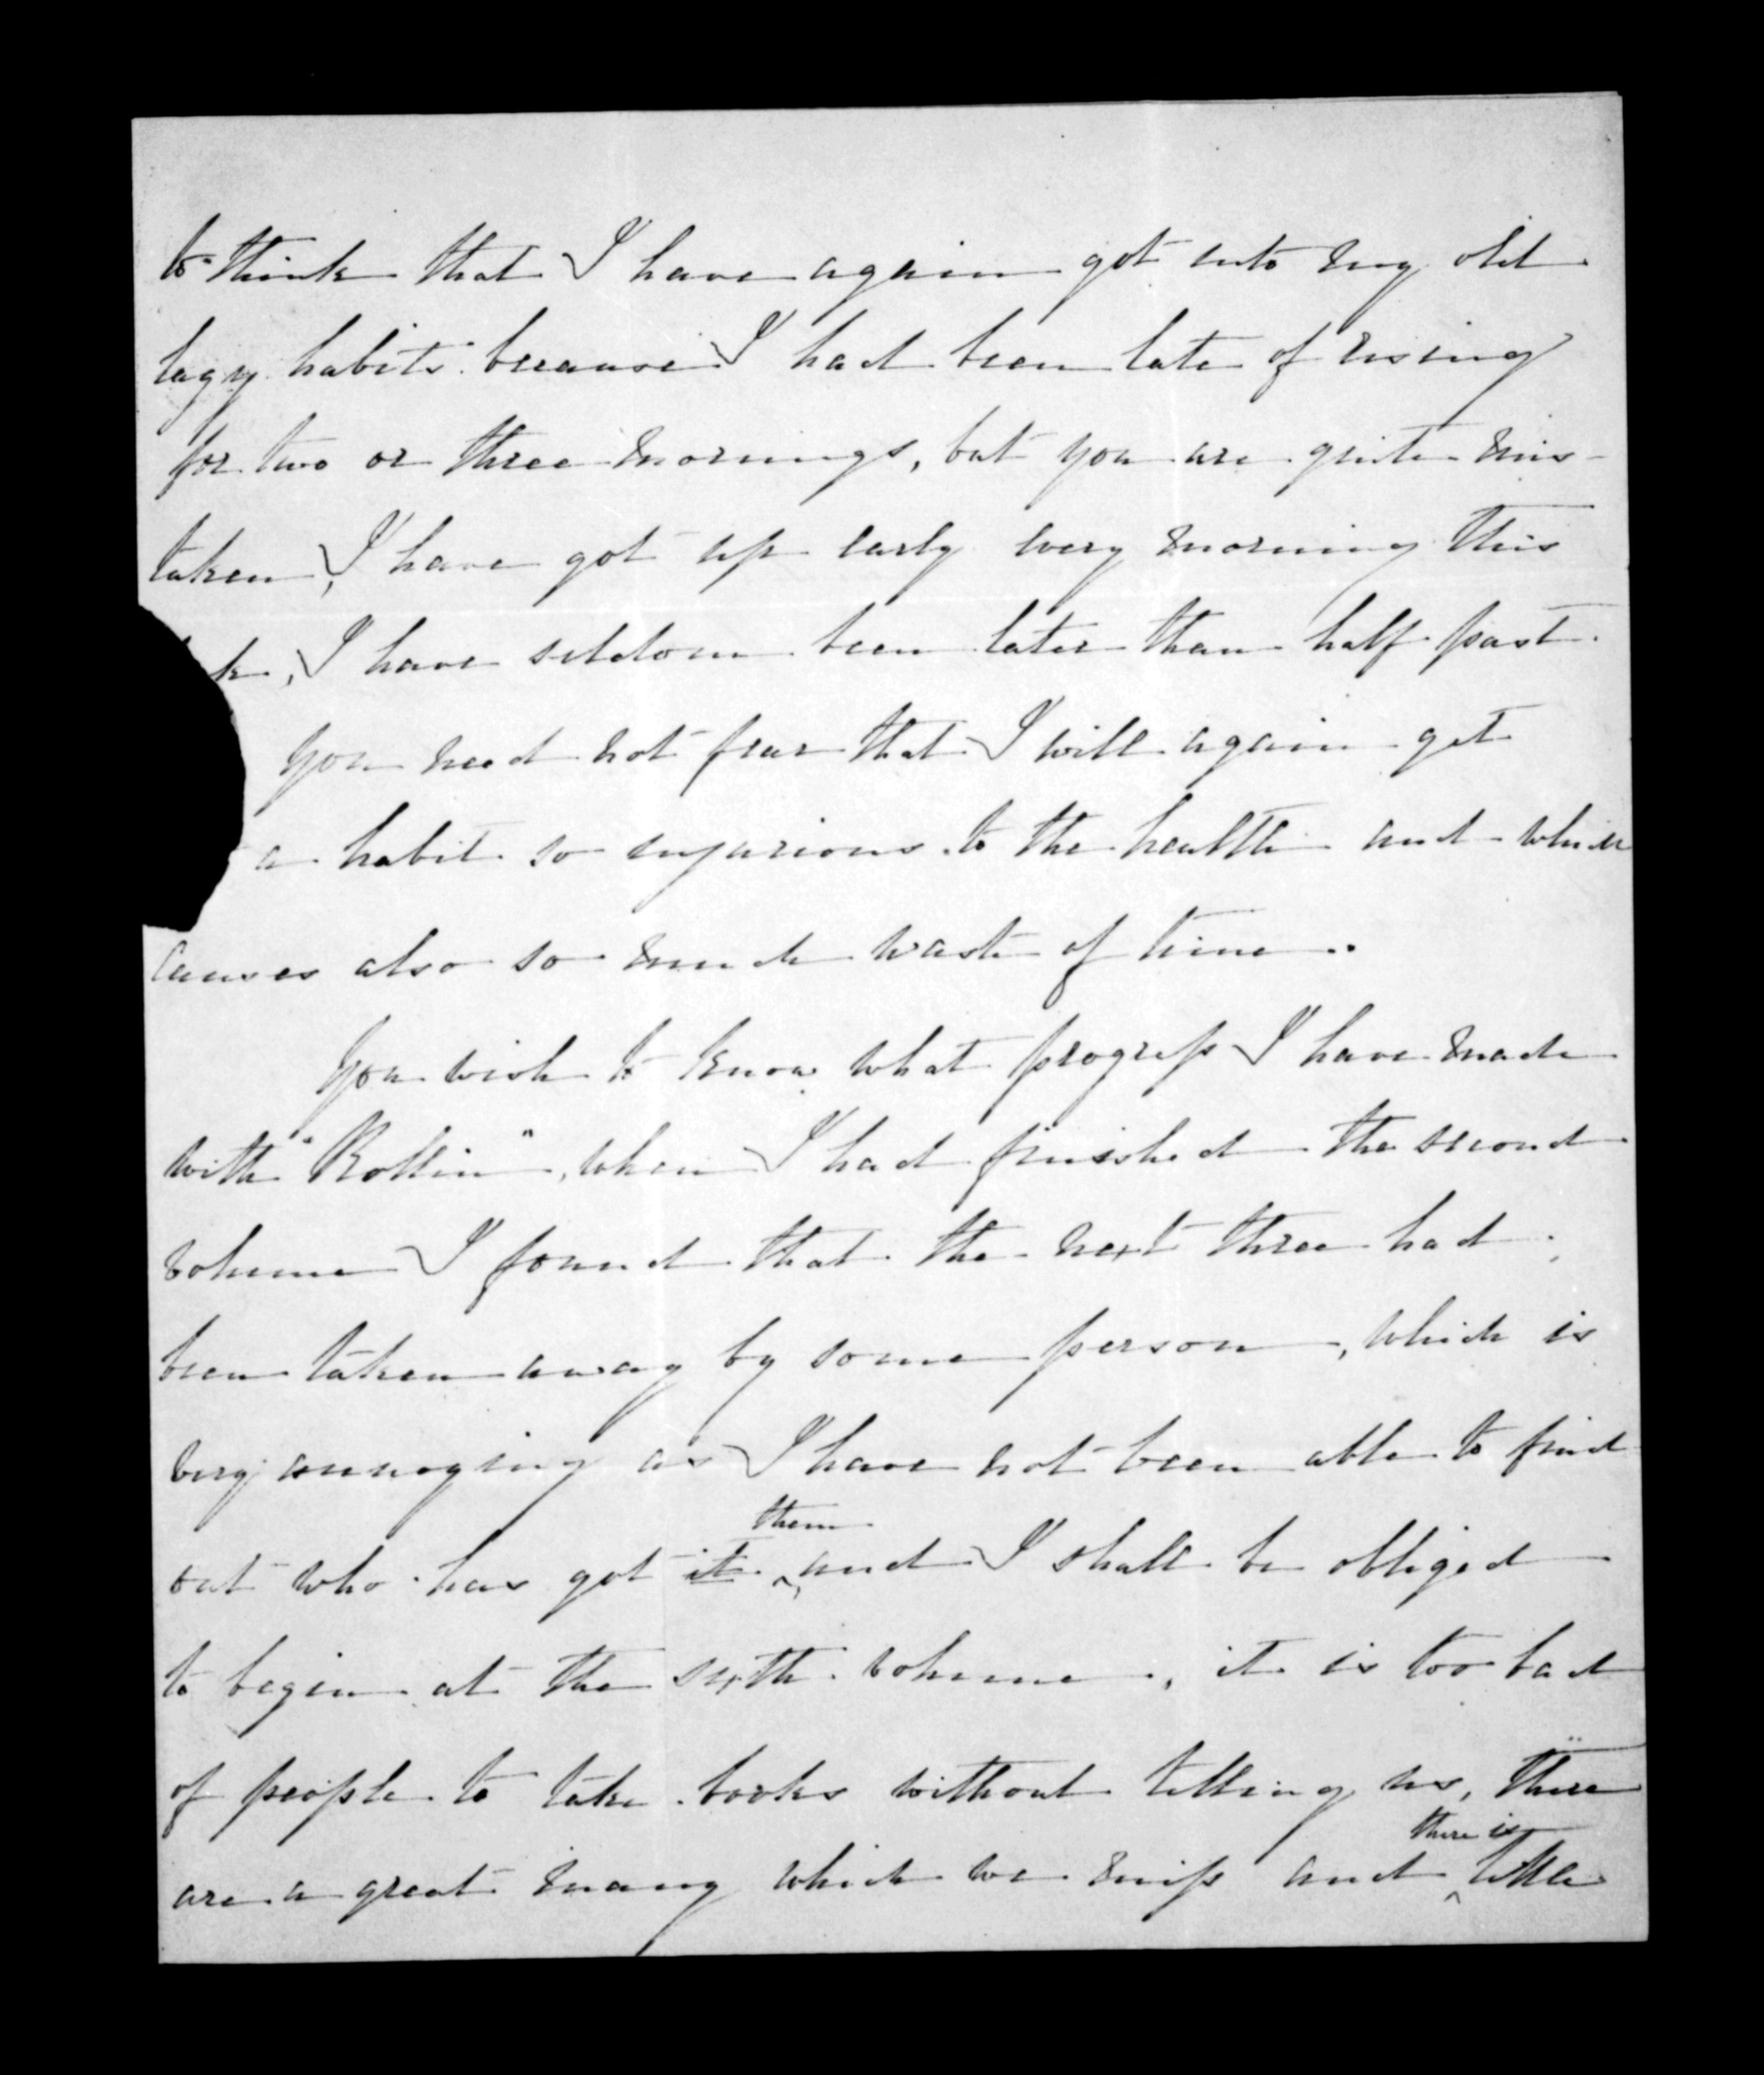 to think that I have again got into my old
lazy habits because I had been late of rising
for two or three mornings, but you are quite mis-
taken, I have got up early every morning this
k, I have seldom been later than half past
you need not fear that I will again get
a habit so injurious to the health and which
causes also so much waste of time..
You wish to know what progress I have made
with "Rollin", when I had finished the second
volume I found that the next three had
been taken away by some person, which is
very annoying as I have not been able to find
them
out who has got it, and I shall be obliged
to begin at the sixth volume, it is too bad
of people to take books without telling us, there
there is
are a great many which we miss and little